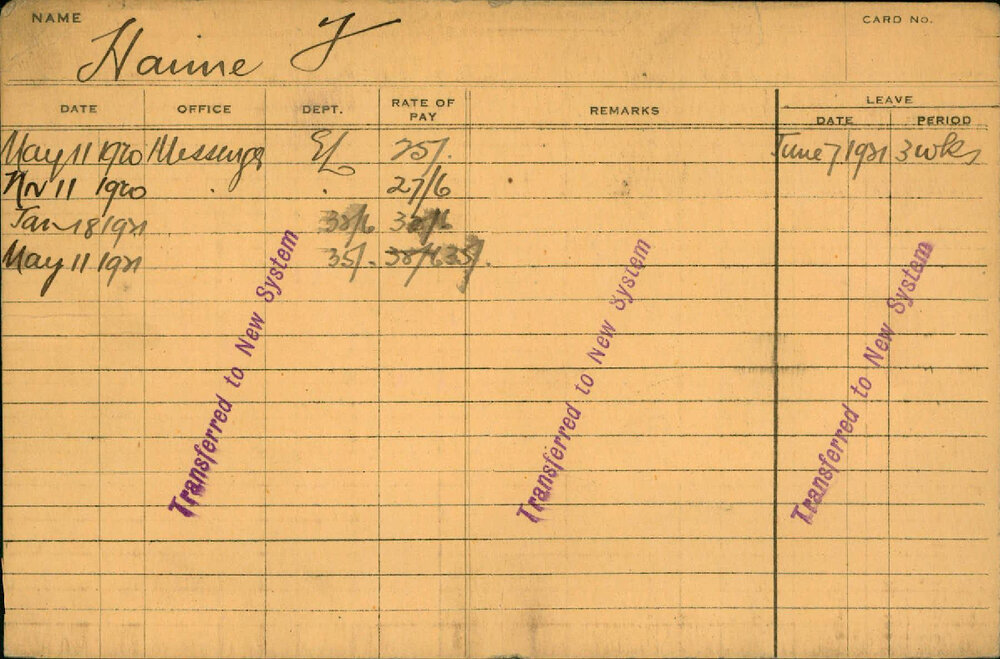 NAME
Haime J
CARD No.
DATE OFFICE DEPT. RATE OF PAY REMARKS LEAVE
DATE PERIOD
May 11 1920 Messenger 25/. June 7 1921 3 wks
Nov 11 1920 . . 27/6
Jan 18 1921
May 11 1921 35/.
Transferred to New System
Transferred to New System
Transferred to New System